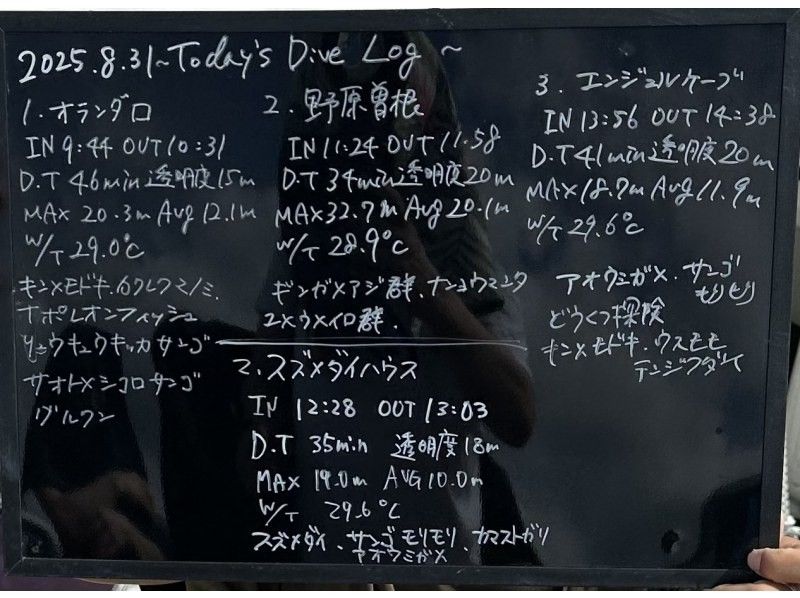 2025.8.31~Today's Dive Log~
1. オランダロ
IN 9:44 OUT 10:31
D.T 46min 透明度15m
MAX 20.3m Avg 12.1m
W/T 29.0℃
キンメモドキ.カクレクマノミ.
ナポレオンフィッシュ
リュウキュウキッカサンゴ
サオトメシコロサンゴ
グルクン
2. 野原曽根
IN 11:24 OUT 11:58
D.T 34min 透明度20m
MAX 32.7m Avg 20.1m
W/T 28.9℃
ギンガメアジ群.ナンヨウマンタ
ユメウメイロ群.
2. スズメダイハウス
IN 12:28 OUT 13:03
D.T 35min 透明度18m
MAX 14.0m AVG 10.0m
W/T 29.6℃
スズメダイ.サンゴモリモリ.カマストガリ
アオウミガメ
3. エンジェルケーブ
IN 13:56 OUT 14:38
D.T 41min 透明度20m
MAX 18.7m Avg 11.9m
W/T 29.6℃
アオウミガメ.サンゴ
モリモリ
どうくつ探険
キンメモドキ.ウスモモ
テンジクダイ